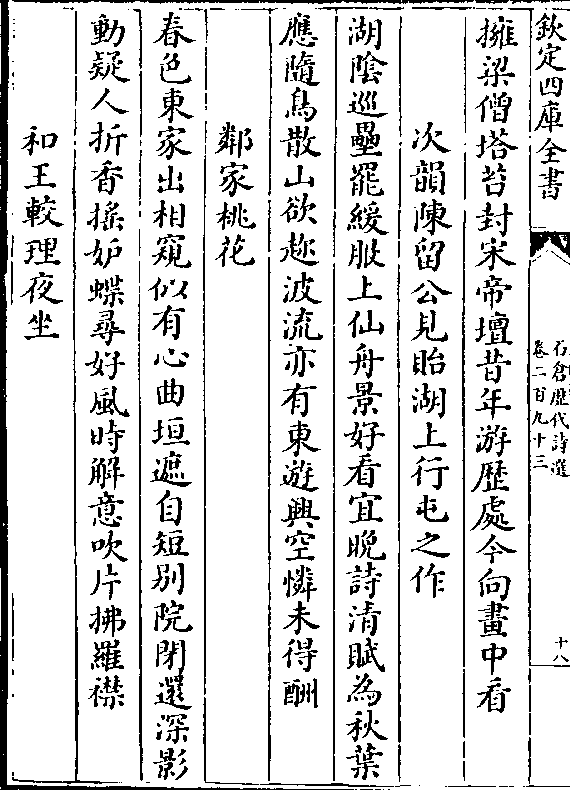 欽定四庫全書
石倉歷代詩選
卷二百九十三
十八
擁梁僧塔苔封宋帝壇昔年游歷處今向畫中看
次韻陳留公見貽湖上行屯之作
湖陰巡壘罷緩服上仙舟景好看宜晩詩清賦為秋葉
應隨鳥散山欲趂波流亦有東遊興空憐未得酬
鄰家桃花
春色東家出相窺似有心曲垣遮自短别院閉還深影
動疑人折香揺妒蝶尋好風時解意吹片拂羅襟
和王較理夜坐